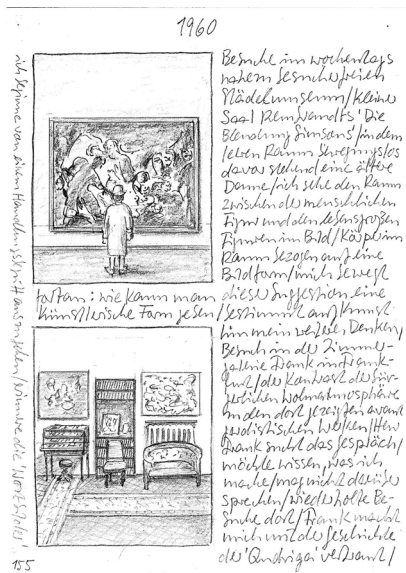 1960
Besuche im wochentags
nahezu besucherfreien
Städelmuseum/Kleiner
Saal Rembrandts 'Die
Blendung Simsons'/in dem
leeren Raum bewegungslos
davor stehend eine ältere
Dame/ich sehe den Raum
zwischen der menschlichen
Figur und den lebensgroßen
Figuren im Bild/Körper im
Raum bezogen auf eine
Bildform/mich bewegt
fortan: wie kann man dieser Suggestion eine
künstlerische Form geben/bestimmt auf Kunst
hin mein weiteres Denken/
Besuch in der Zimmer-
galerie Franck in Frank-
furt/der Kontrast der bür-
gerlichen Wohnatmosphäre
zu den dort gezeigten avant
gardistischen Werken/Herr
Franck sucht das Gespräch/
möchte wissen, was ich
mache/mag nicht darüber
sprechen/wiederholte Be-
suche dort/Franck macht
mich mit der Geschichte
der 'Quadriga' vertraut/
ich beginne von einem Handlungsbegriff auszugehen/
155